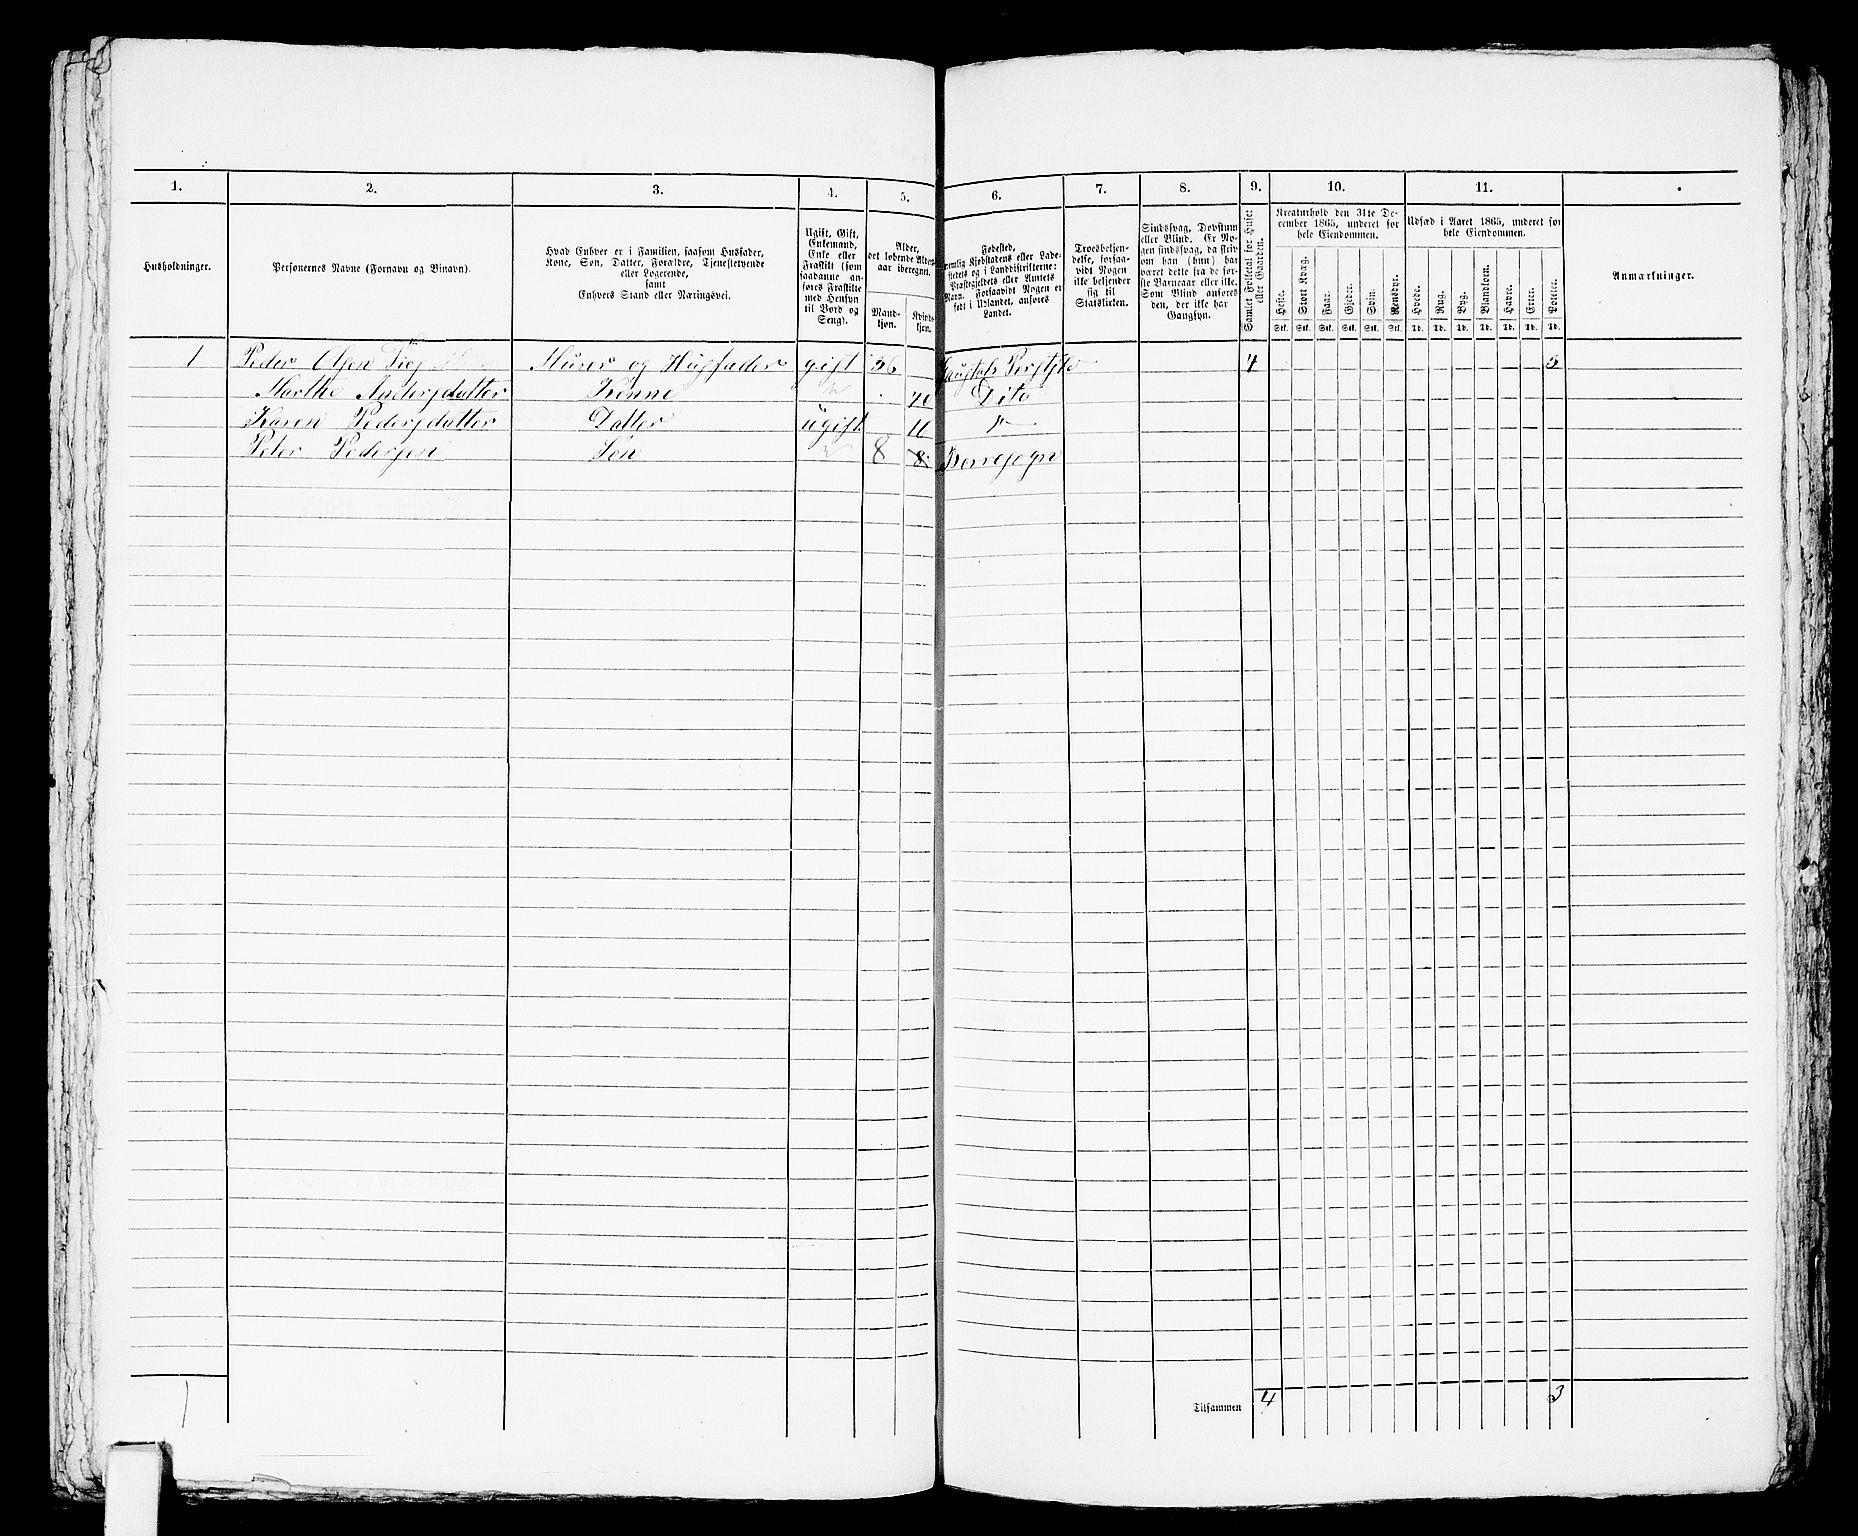 1. 2. 3. 4. 5. 6. 7. 8. 9. 10. 11.
Husholdninger.
Personernes Navne (Fornavn og Binavn).
Hvad Enhver er i Familien, saasom Husfader,
Kone, Søn, Datter, Forældre, Tjenestetyende
eller Logerende,
samt
Enhvers Stand eller Næringsvei.
Ugift, Gift,
Enkemand,
Enke eller
Fraskilt (som
saadanne an-
føres Fraskilte
med Hensyn
til Bord og
Seng).
Alder,
det løbende Alders-
aar iberegnet.
Mand-
kjøn.
Kvind-
kjøn.
Fødested,
nemlig Kjøbstadens eller Lade-
stedets og i Landdistrikterne:
Præstegjeldets eller Amtets
Navn. Forsaavidt Nogen er
født i Udlandet, anføres
Landet.
Troesbekjen-
delse, forsaa-
vidt Nogen
ikke bekjender
sig til
Statskirken.
Sindssvag, Døvstum
eller Blind. Er No-
gen sindssvag, da skriv
om han (hun) har
været dette fra de før-
ste Barneaar eller ikke.
Som Blind anføres
den, der ikke har
Gangsyn.
Samlet Folketal for Huset
eller Gaarden.
Kreaturhold den 31te De-
cember 1865, underet for
hele Eiendommen.
Heste. Stort Kvæg. Faar. Gjeder. Svin. Rensdyr.
Stk. Stk. Stk. Stk. Stk. Stk.
Udsæd i Aaret 1865, underet for
hele Eiendommen.
Hvede. Rug. Byg. Blandkorn. Havre. Erter. Poteter.
Td. Td. Td. Td. Td. Td. Td.
Anmærkninger.
1 Peder Olsen Murer og Husfader gift 36 4 3
Marthe Andersdatter Konne 40 Dito
Karen Pedersdatter Datter ugift "
Peter Pedersen Søn 8 8 Borresogn
1 Tilsammen 4 3